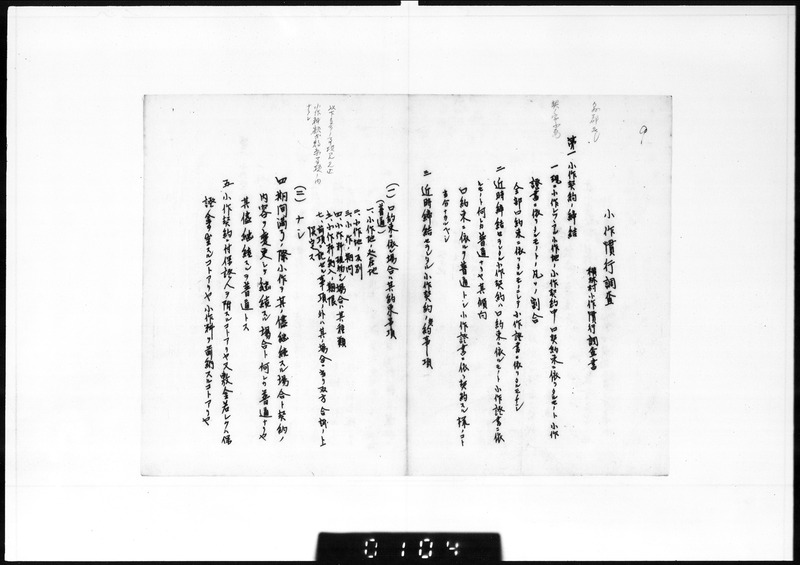 小作慣行調査
積林村小作慣行調査書
第一 小作契約ノ締結
一 現ニ小作シアル小作地ノ小作契約中口約束ニ依ルモノト小作
證書ニ依ルモノトノ凡ソノ割合
全部口約束ニ依ルモノニシテ小作證書ニ依ルモノナシ
二 近時締結セラルル小作契約ハ口約束ニ依ルモノト小作證書ニ依
ルモノト何レカ普通ナリヤ其傾向
口約束ニ依ルヲ普通トシ小作證書ニ依リ契約スル様ノコト
三 近時締結セラルル小作契約ノ契約事項
(一) 口約束ニ依ル場合ノ其約束事項
(普通)
一、小作地ノ所在地
二、小作地ノ反別
三、小作ノ期間
四、小作料種類ノ場合ハ其種類
六、小作料納入ノ期限
七、前項ニ記セル事項ノ外ハ其ノ場合ニ当リ双方合議ノ上
決定ス
(二) ナシ
四 期間満了ノ際小作ヲ其ノ儘継続スル場合ト契約ノ
内容ヲ変更シテ継続スル場合ト何レカ普通ナリヤ
其儘継続スルヲ普通トス
五 小作契約ニ付保證人ヲ附スルコトアリヤ又敷金若シクハ保
證金ヲ差入ルコトアリヤ小作料ヲ前納スルコトアリヤ
0104